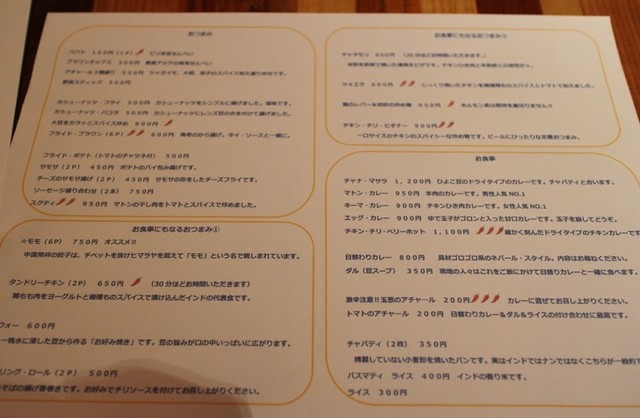 おつまみ
パパド １００円（１Ｐ） ピリ辛豆せんべい
プラウンチップス ３００円 東南アジアの海老せんべい
アチャール３種盛り ５００円 ジャガイモ、大根、茄子のスパイス和え盛り合せです。
野菜スティック ５００円
カシューナッツ・フライ ３００円 カシューナッツをシンプルに揚げました。塩味です。
カシューナッツ・パコラ ５００円 カシューナッツにレンズ豆の衣を付けて揚げました。
大豆をカラッとスパイス炒め ６００円
フライド・プラウン（６Ｐ） ６００円 海老のから揚げ。タイ・ソースと一緒に。
フライド・ポテト（トマトのチャツネ付） ５００円
サモサ（２Ｐ） ４５０円 ポテトのパイ包み揚げです。
チーズのサモサ揚げ（２Ｐ） ４５０円 サモサの形をしたチーズフライです。
ソーセージ盛り合わせ（２本） ７５０円
スクティ ９５０円 マトンの干し肉をトマトとスパイスで炒めました。
お食事にもなるおつまみ①
☆モモ（６Ｐ） ７５０円 オススメ!!
中国発祥の餃子は、チベットを抜けヒマラヤを超えて「モモ」という名で親しまれています。
タンドリーチキン（２Ｐ） ６５０円 （３０分ほどお時間いただきます）
鶏もも肉をヨーグルトと幾種ものスパイスで漬け込んだインドの代表食です。
ウォー ６００円
一晩水に浸した豆から作る「お好み焼き」です。豆の旨みが口の中いっぱいに広がります。
リング・ロール（２Ｐ） ５００円
そばの揚げ春巻きです。お好みでチリソースを付けてお召し上がりください。
お食事にもなるおつまみ②
チャタモン ８５０円 （３０分ほどお時間いただきます。）
ツォエラ ６５０円 じっくり焼いたチキンを幾種類ものスパイスとトマトで和えました。
鶏のレバー＆砂肝の炒め物 ９５０円 ホルモン系は期待を裏切りません!!
チキン・チリ・ビギナー ９００円
一口サイズのチキンのスパイシーな炒め物です。ビールにぴったりな定番おつまみ。
お食事
チャナ・マサラ １，２００円 ひよこ豆のドライタイプのカレーです。チャパティと合います。
マトン・カレー ９５０円 羊肉のカレーです。男性人気 NO.1
キーマ・カレー ９００円 チキンひき肉カレーです。女性人気 NO.1
エッグ・カレー ９００円 ゆで玉子がゴロンと入った甘口カレーです。玉子を崩してどうぞ。
チキン・チリ・ベリーホット １,１００円 細かく刻んだドライタイプのチキンカレーです
日替わりカレー ８００円 具材ゴロゴロ系のネパール・スタイル。内容はお尋ねください。
ダル（豆スープ） ３５０円 現地の人々はこれをご飯にかけて日替りカレーと一緒に食べます。
激辛注意!!玉葱のアチャール ２００円 カレーに混ぜてお召し上がりください。
トマトのアチャール ２００円 日替わりカレー＆ダル＆ライスの付け合わせに最高です。
チャパティ（２枚） ３５０円
精製していない小麦粉を焼いたパンです。実はインドではナンではなくこちらが一般的
バスマティ ライス ４００円 インドの香り米です。
ライス ３００円